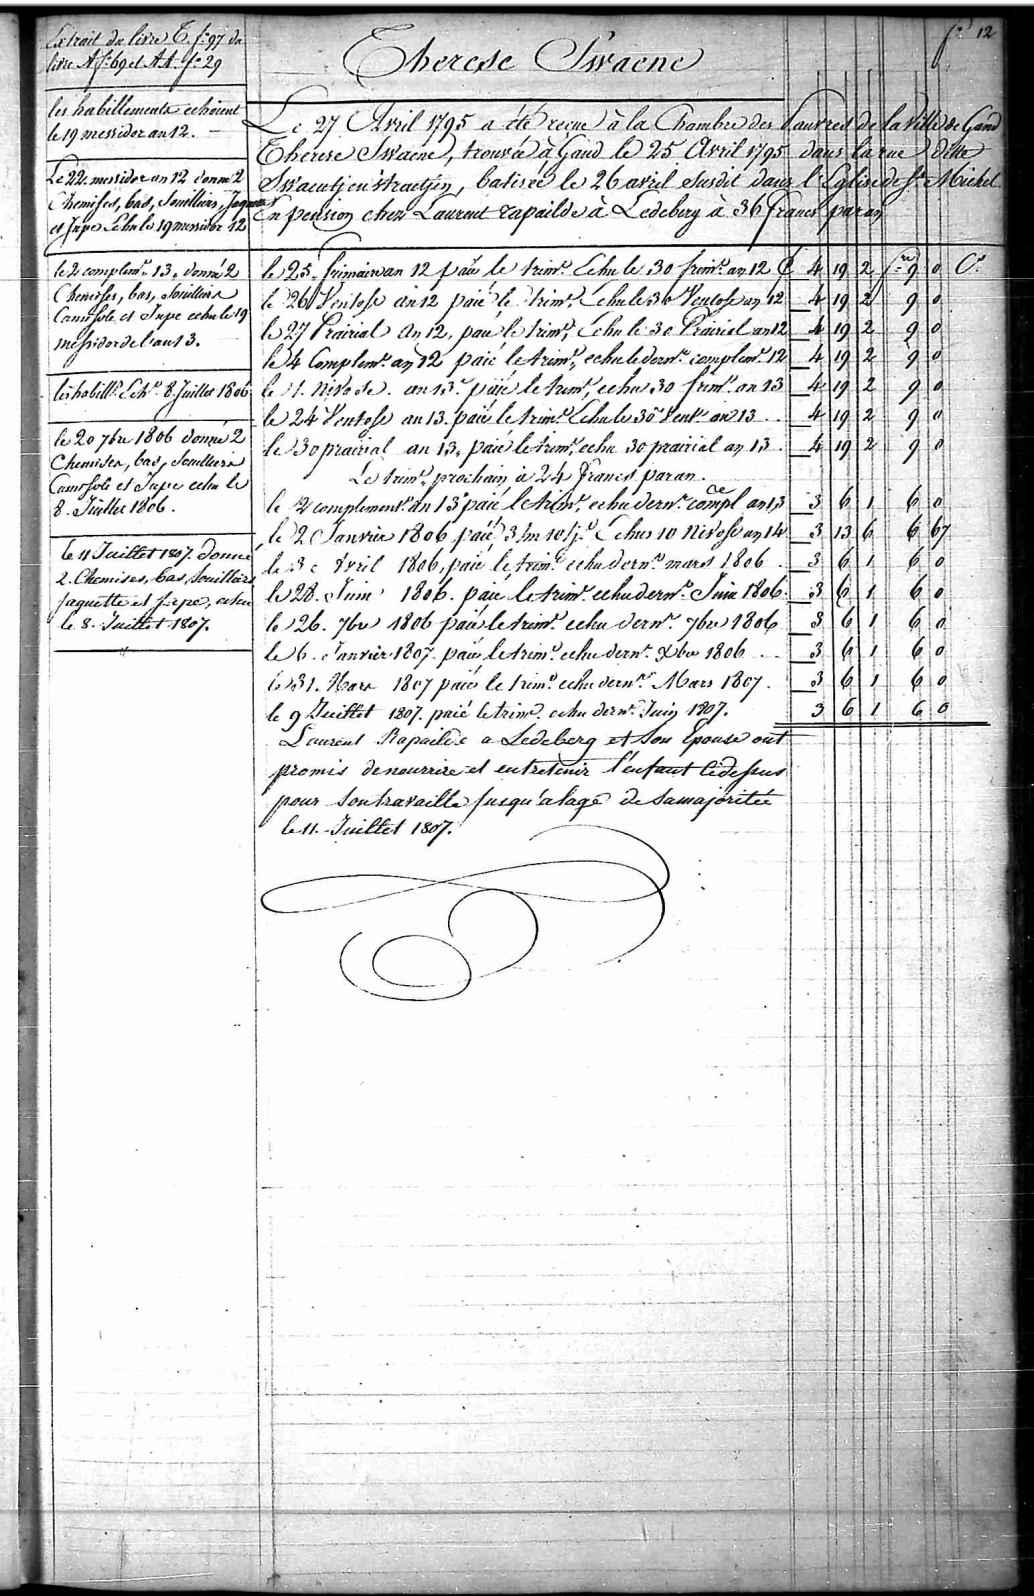 fº 12
Extrait du livre C. fº 97 du
livre A fº 69 et AA. fº 29
Therese Swaene
Le 27 Avril 1795 a été reçue à la Chambre des Pauvres de la Ville de Gand
Therese Swaene, trouvée à Gand le 25 Avril 1795 dans la rue ditte
Swaentjenstraetjen, batisée le 26 avril susdit dans l'Eglise de St. Michel
En pension chez Laurent rapailde à Ledeberg à 36 francs par an
les habillements echoient
le 19 messidor an 12.
Le 22 messidor an 12 donné 2
Chemises, bas, Souilliers, Jaquette
et Jupe Echu le 19 messidor 12
le 2 complemre 13. donné 2
Chemises, bas, Souilliers
Camisole et Jupe echu le 19
messidor de l'an 13.
les habillts Echt 8 Juillet 1806
le 20 7bre 1806 donné 2
Chemises, bas, Souilliers
Camisole et Jupe echu le
8. Juillet 1806.
le 11 Juillet 1807. donné
2. Chemises, bas, Souilliers
jaquette et jupe, echu
le 8. Juillet 1807.
le 25. frimaire an 12 paié le trimre Echu le 30 frimre an 12 £ 4 19 2 frs 9 0 Cs
le 26 Ventose an 12 paié le trimre Echu le 30 Ventose an 12 4 19 2 9 0
le 27 Prairial an 12, paié le trimre Echu le 30 Prairial an 12 4 19 2 9 0
le 4 Complemre an 12 paié le trimre, echu le dernr complemre 12 4 19 2 9 0
le 1. Nivose. an 13. paié le trimre, echu 30 frimre an 13 4 19 2 9 0
le 24 Ventose an 13. paié le trimre Echu le 30 Vente an 13 4 19 2 9 0
le 30 prairial an 13. paié le trimre, echu 30 prairial an 13 4 19 2 9 0
Le trimre prochain à 24 francs par an.
le 2 complementre an 13 paié le trimre, echu dernr compl an 13 3 6 1 6 0
le 2 Janvier 1806 paié 3 m 10 j. Echus 10 Nivose an 14 3 13 6 6 67
le 3 avril 1806, paié le trimre echu dernr mars 1806 3 6 1 6 0
le 28. Juin 1806. paié le trimre echu dernr Juin 1806. 3 6 1 6 0
le 26. 7bre 1806 paié le trimre echu dernr 7bre 1806 3 6 1 6 0
le 6. Janvier 1807. paié le trimre echu dernr Xbre 1806 3 6 1 6 0
le 31. Mars 1807 paié le trimre echu dernr Mars 1807. 3 6 1 6 0
le 9 Juillet 1807. paié le trimre. echu dernr Juin 1807. 3 6 1 6 0
Laurent Rapailde a Ledeberg et son Epouse ont
promis de nourrire et entretenir l'enfant cidessus
pour son travaille jusqu'a lage de sa majoritée
le 11. Juillet 1807.